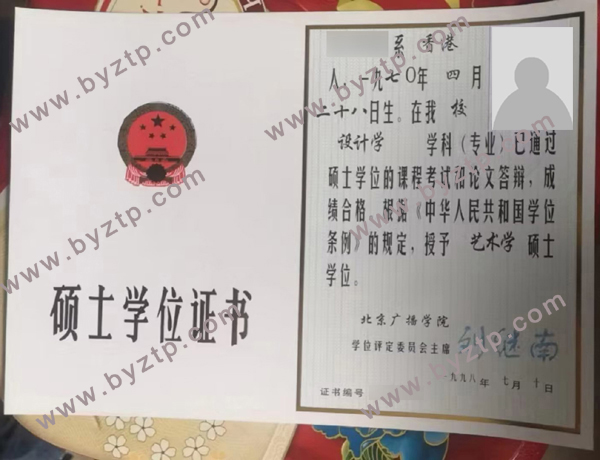 硕士学位证书
系 香港
人，一九七〇年 四月
二十八日生。在我 校
设计学 学科（专业）已通过
硕士学位的课程考试和论文答辩，成
绩合格。根据《中华人民共和国学位
条例》的规定，授予 艺术学 硕士
学位。
北京广播学院
学位评定委员会主席 刘继南
一九九八年 七月 十日
证书编号
www.byztp.com
www.byztp.com
www.byztp.com
www.byztp.com
www.byztp.com
www.byztp.com